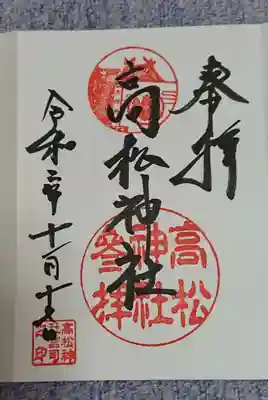 奉拝
高松神社
高松
神社
参拝
令和二年十一月十七日
高松神
社宮司
之印